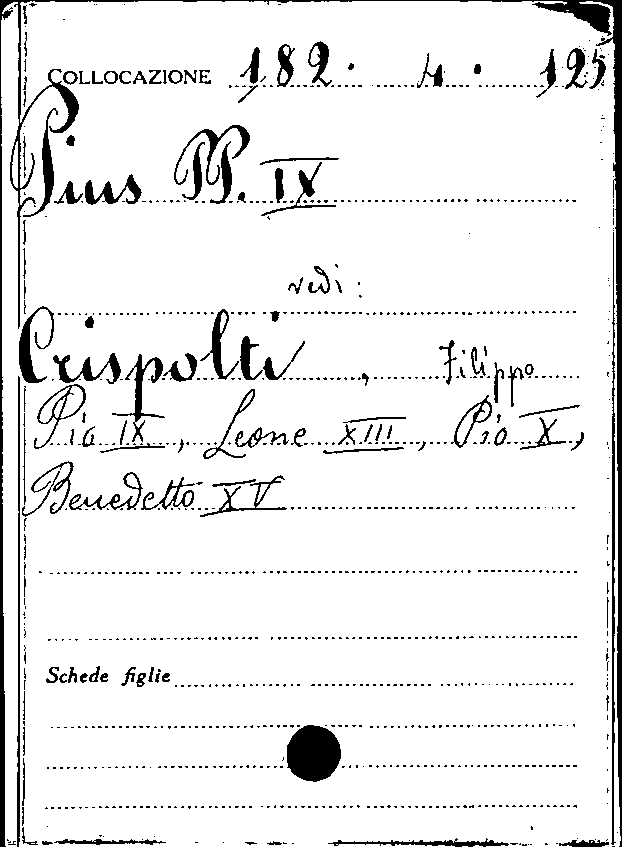 COLLOCAZIONE 182. 4. 125
Pius PP. IX
vedi:
Crispolti, Filippo
Pio IX, Leone XIII, Pio X,
Benedetto XV
Schede figlie